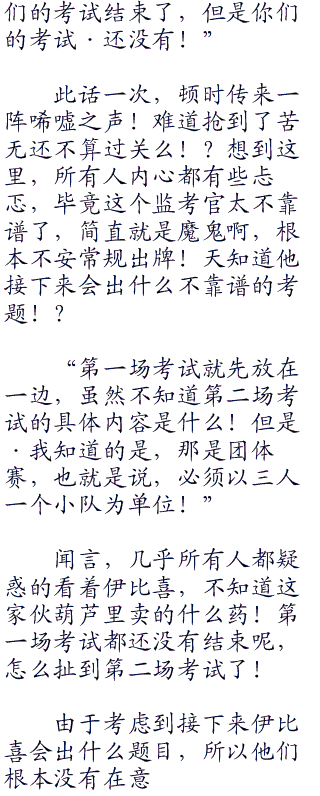 们的考试结束了，但是你们
的考试·还没有！”
此话一次，顿时传来一
阵唏嘘之声！难道抢到了苦
无还不算过关么！？想到这
里，所有人内心都有些忐
忑，毕竟这个监考官太不靠
谱了，简直就是魔鬼啊，根
本不安常规出牌！天知道他
接下来会出什么不靠谱的考
题！？
“第一场考试就先放在
一边，虽然不知道第二场考
试的具体内容是什么！但是
·我知道的是，那是团体
赛，也就是说，必须以三人
一个小队为单位！”
闻言，几乎所有人都疑
惑的看着伊比喜，不知道这
家伙葫芦里卖的什么药！第
一场考试都还没有结束呢，
怎么扯到第二场考试了！
由于考虑到接下来伊比
喜会出什么题目，所以他们
根本没有在意